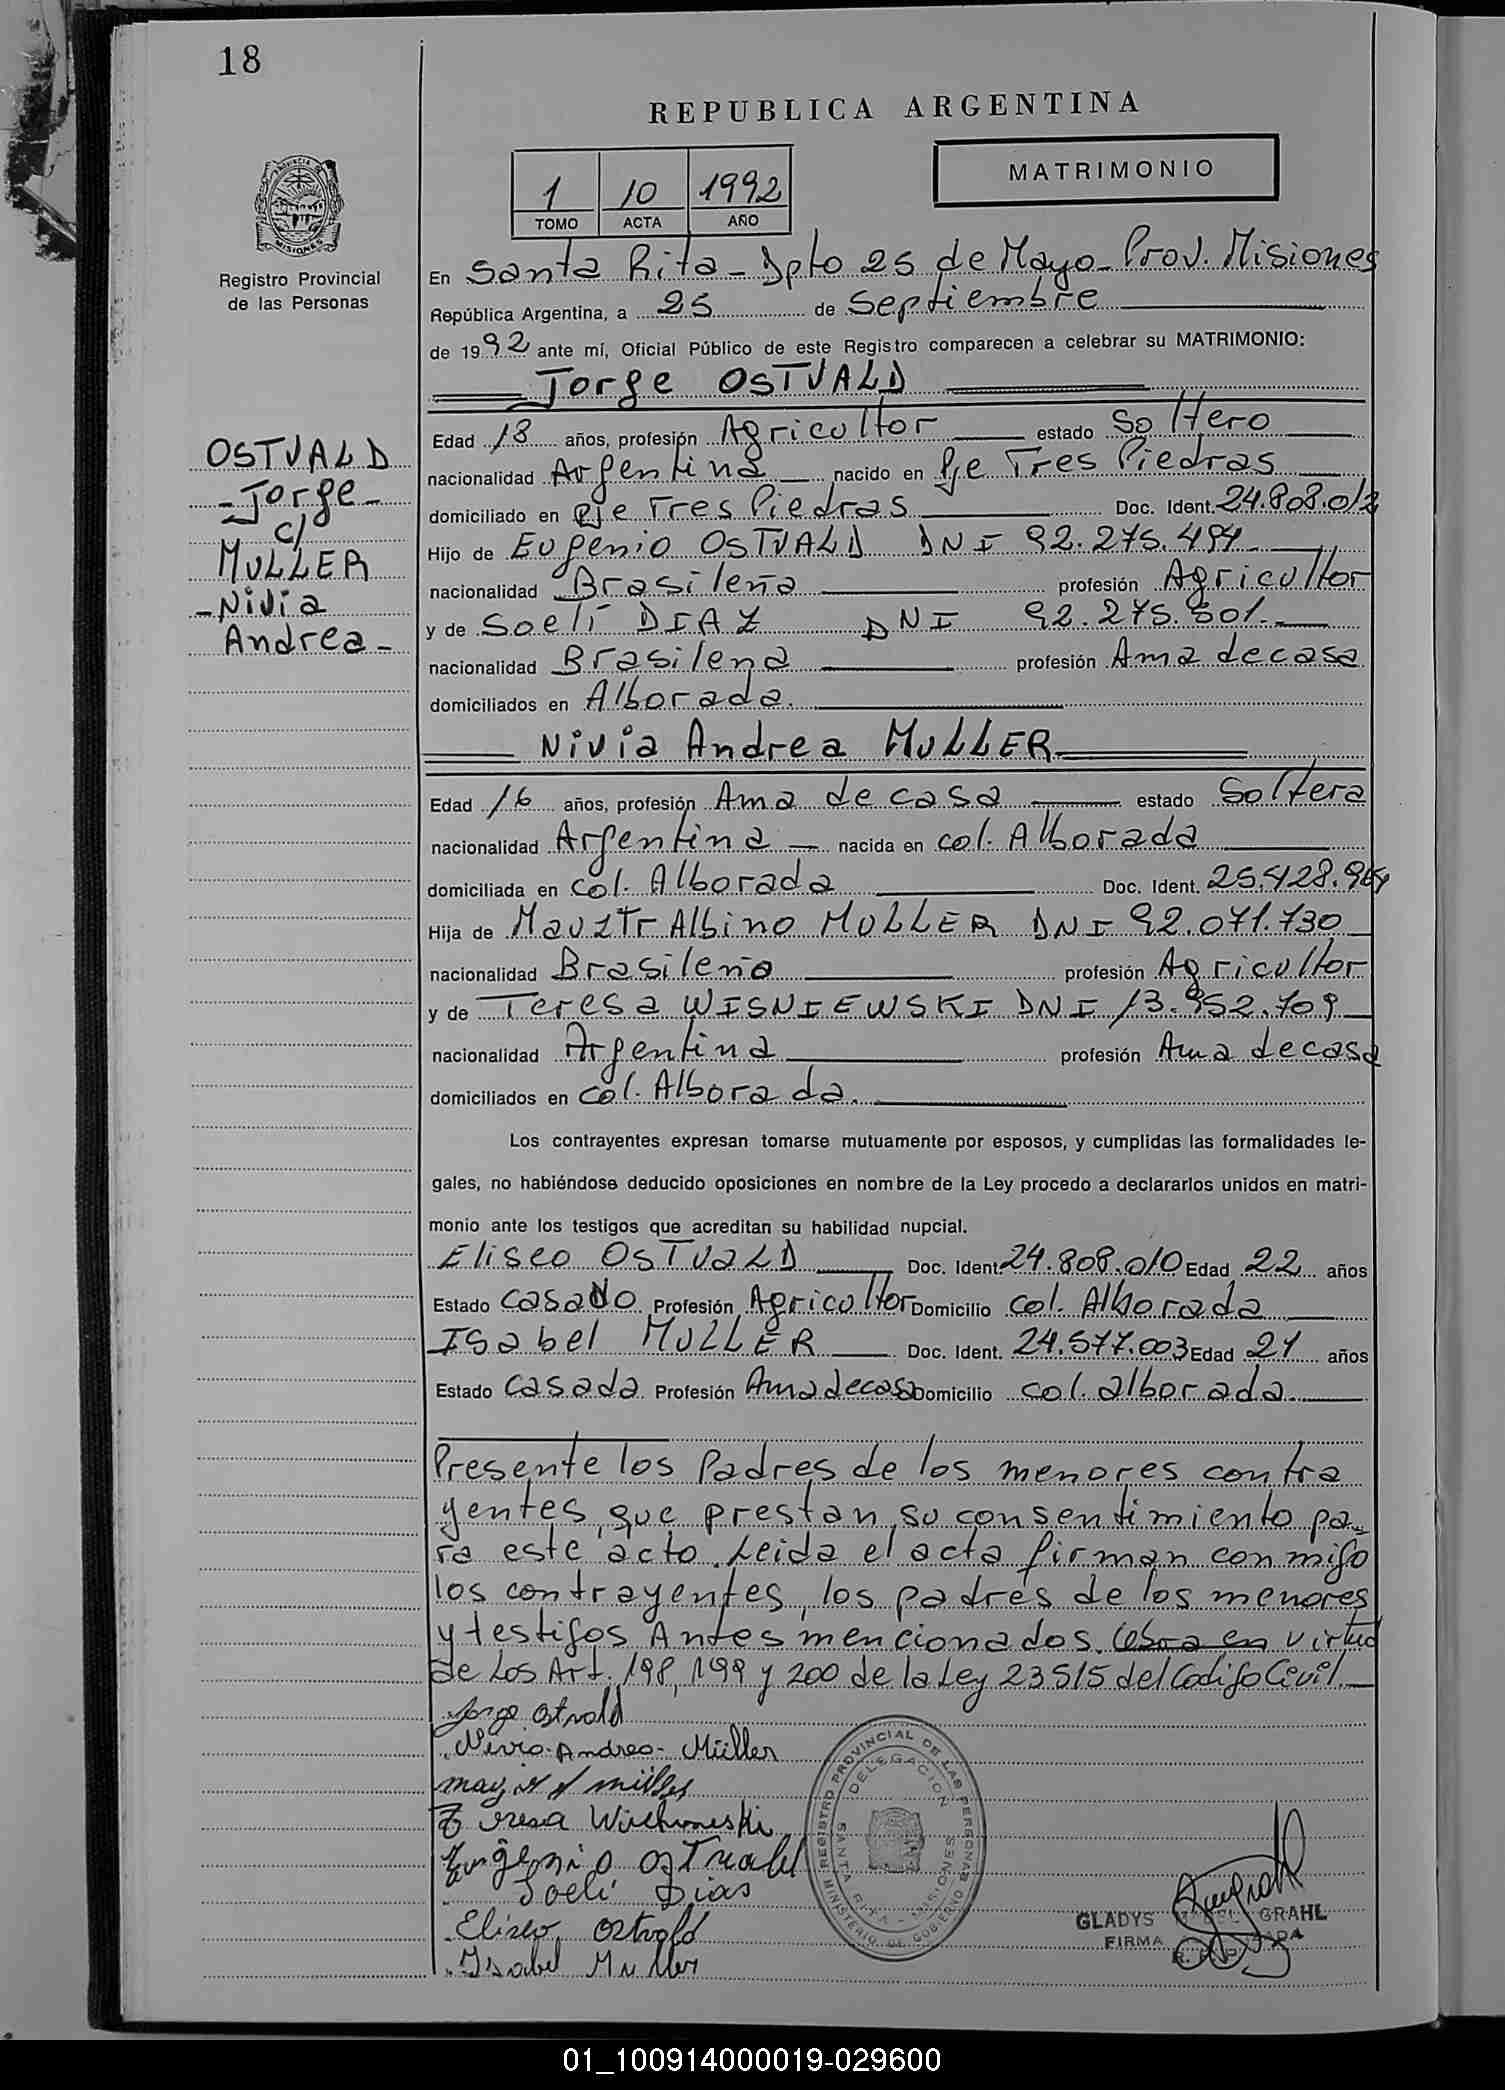 18
REPUBLICA ARGENTINA
MATRIMONIO
1 10 1992
TOMO ACTA AÑO
PROVINCIA DE MISIONES
Registro Provincial
de las Personas
En Santa Rita - Dpto 25 de Mayo - Prov. Misiones
República Argentina, a 25 de Septiembre
de 1992 ante mí, Oficial Público de este Registro comparecen a celebrar su MATRIMONIO:
Jorge OSTVALD
Edad 18 años, profesión Agricultor estado Soltero
nacionalidad Argentina nacido en Pje Tres Piedras
domiciliado en Pje Tres Piedras Doc. Ident. 24.808.012
Hijo de Eugenio OSTVALD DNI 92.275.494
nacionalidad Brasileña profesión Agricultor
y de Soeli DIAZ DNI 92.275.501.
nacionalidad Brasilena profesión Ama de casa
domiciliados en Alborada.
OSTVALD
- Jorge -
c/
MULLER
- Nivia
Andrea -
Nivia Andrea MULLER
Edad 16 años, profesión Ama de casa estado Soltera
nacionalidad Argentina - nacida en col. Alborada
domiciliada en col. Alborada Doc. Ident. 25.428.964
Hija de Albino MULLER DNI 92.071.730
nacionalidad Brasileño profesión Agricultor
y de Teresa WISNIEWSKI DNI 13.952.709
nacionalidad Argentina profesión Ama de casa
domiciliados en col. Alborada.
Los contrayentes expresan tomarse mutuamente por esposos, y cumplidas las formalidades le-
gales, no habiéndose deducido oposiciones en nombre de la Ley procedo a declararlos unidos en matri-
monio ante los testigos que acreditan su habilidad nupcial.
Eliseo OSTVALD Doc. Ident. 24.808.010 Edad 22 años
Estado casado Profesión Agricultor Domicilio col. Alborada
Isabel MULLER Doc. Ident. 24.577.003 Edad 21 años
Estado casada Profesión Ama de casa Domicilio col. alborada
Presente los Padres de los menores contra
yentes, que prestan su consentimiento pa-
ra este acto. Leida el acta firman conmigo
los contrayentes, los padres de los menores
y testigos Antes mencionados. en virtud
de Los Art. 198, 199 y 200 de la Ley 23515 del Codigo Civil.
Jorge Ostvald
Nivia Andrea Müller
Müller
Teresa
Eugênio Ostvald
Soeli Dias
Eliseo Ostvald
Isabel Muller
REGISTRO PROVINCIAL DE LAS PERSONAS
MINISTERIO DE GOBIERNO
DELEGACION
SANTA RITA - MISIONES
GLADYS MABEL GRAHL
FIRMA
01_100914000019-029600